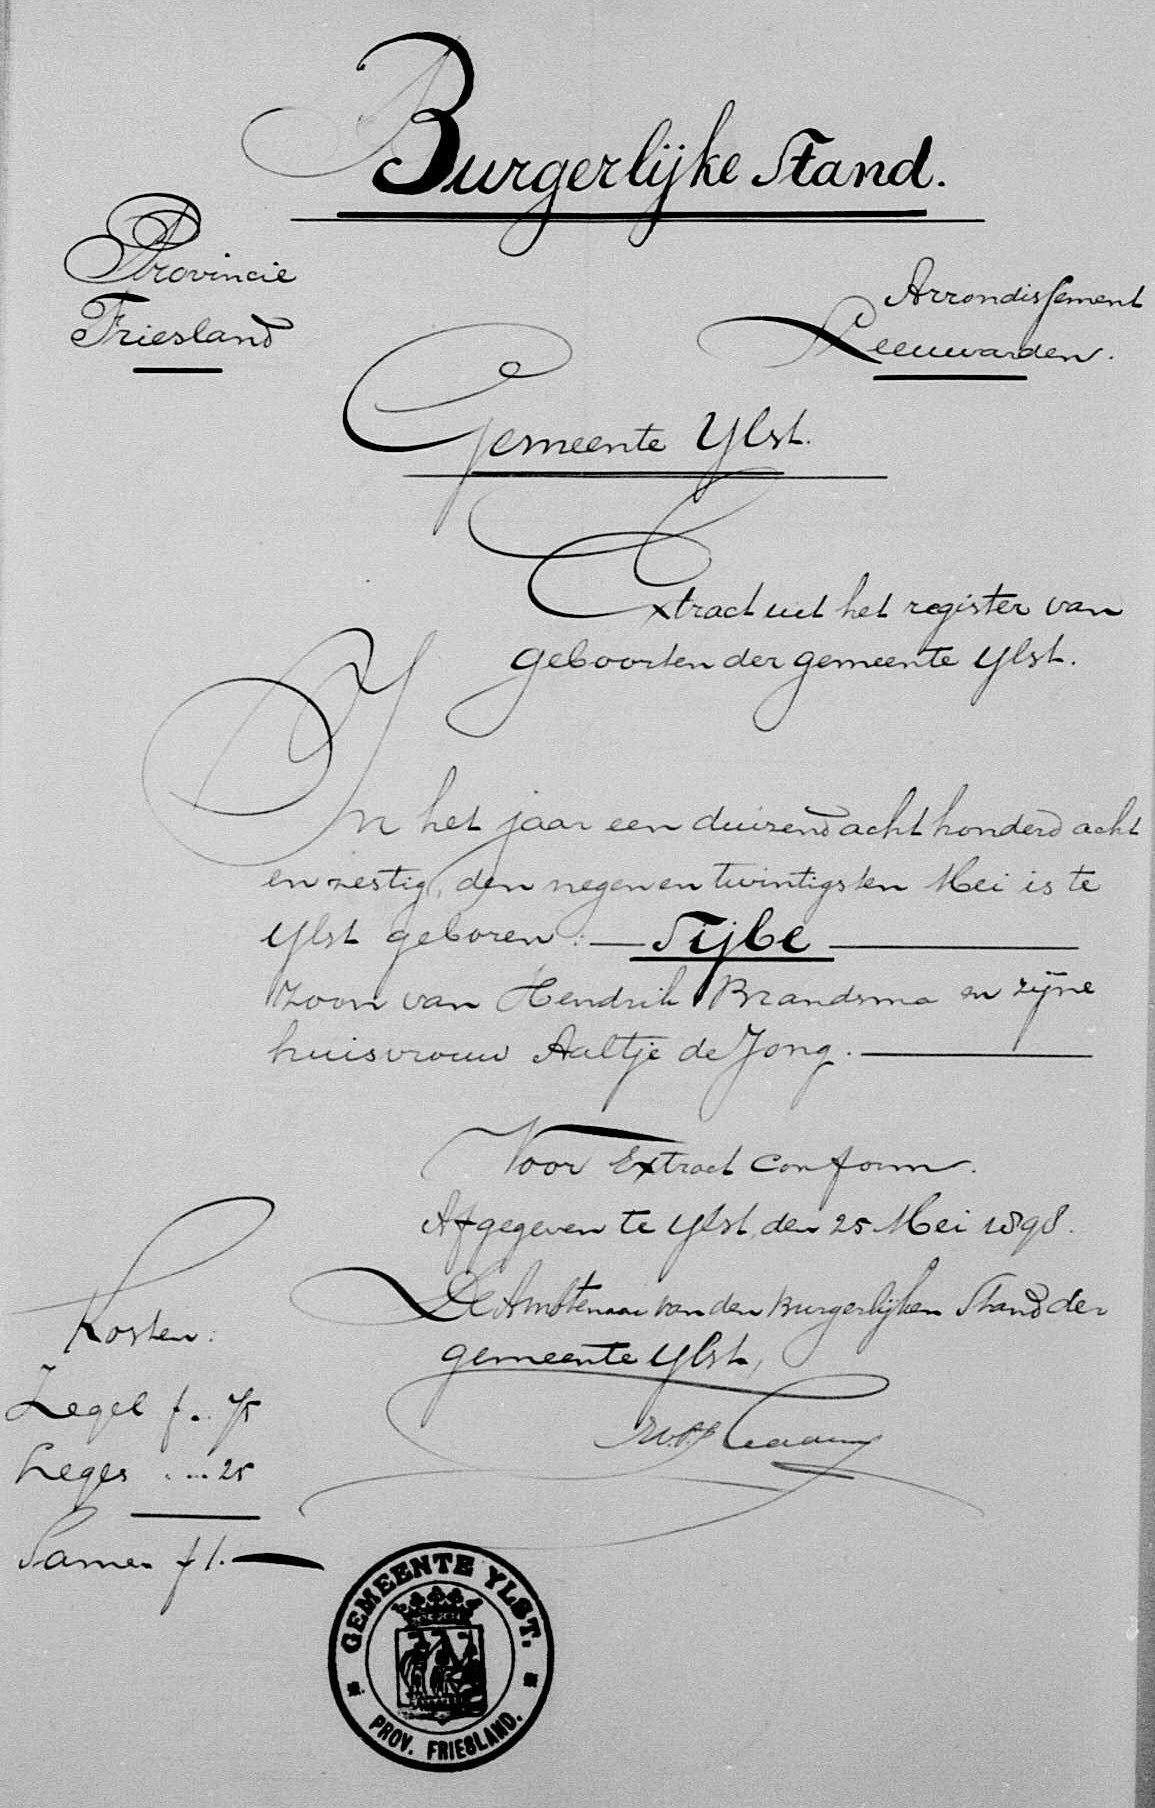 Burgerlijke Stand.
Provincie
Friesland
Arrondissement
Leeuwarden.
Gemeente Ylst.
Extract uit het register van
geboorten der gemeente Ylst.
In het jaar een duizend acht honderd acht
en zestig, den negen en twintigsten Mei is te
Ylst geboren: — Sijbe —
zoon van Hendrik Brandsma en zijne
huisvrouw Aaltje de Jong. —
Voor Extract conform.
Afgegeven te Ylst, den 25 Mei 1898.
De Ambtenaar van den Burgerlijken Stand der
gemeente Ylst,
Kosten:
Zegel f .. 75
Leges . ... 25
Samen f 1. —
GEMEENTE YLST.
PROV. FRIESLAND.